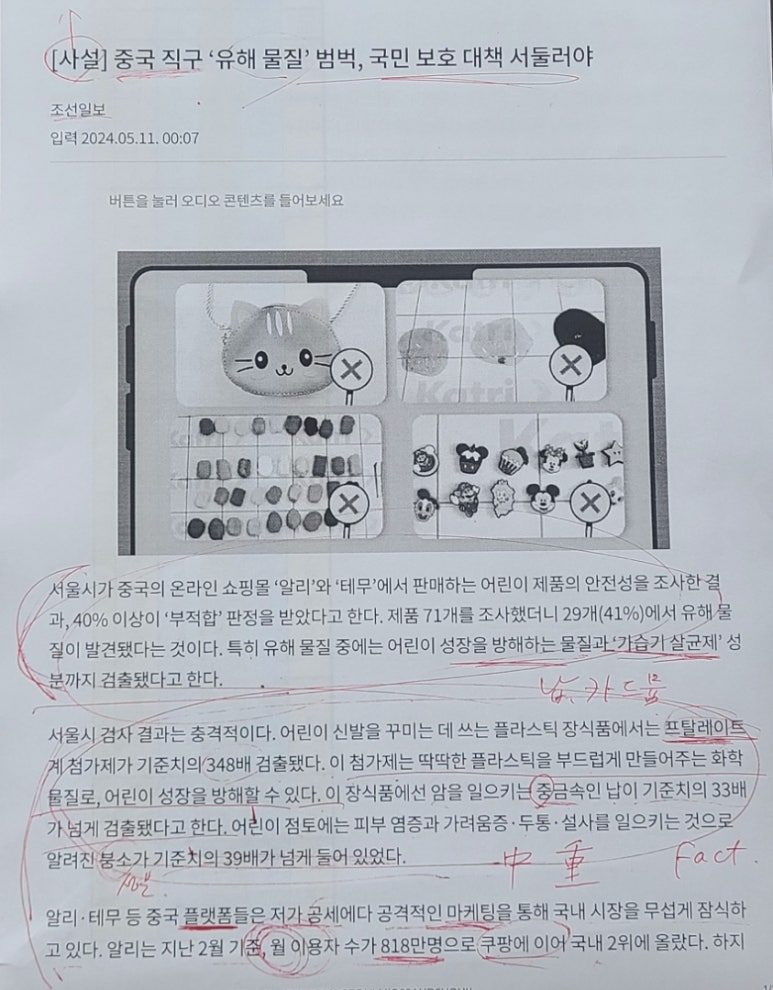 [사설] 중국 직구 ‘유해 물질’ 범벅, 국민 보호 대책 서둘러야
조선일보
입력 2024.05.11. 00:07
버튼을 눌러 오디오 콘텐츠를 들어보세요
Katri
Katri
서울시가 중국의 온라인 쇼핑몰 ‘알리’와 ‘테무’에서 판매하는 어린이 제품의 안전성을 조사한 결
과, 40% 이상이 ‘부적합’ 판정을 받았다고 한다. 제품 71개를 조사했더니 29개(41%)에서 유해 물
질이 발견됐다는 것이다. 특히 유해 물질 중에는 어린이 성장을 방해하는 물질과 ‘가습기 살균제’ 성
분까지 검출됐다고 한다.
납, 카드뮴
서울시 검사 결과는 충격적이다. 어린이 신발을 꾸미는 데 쓰는 플라스틱 장식품에서는 프탈레이트
계 첨가제가 기준치의 348배 검출됐다. 이 첨가제는 딱딱한 플라스틱을 부드럽게 만들어주는 화학
물질로, 어린이 성장을 방해할 수 있다. 이 장식품에선 암을 일으키는 중금속인 납이 기준치의 33배
가 넘게 검출됐다고 한다. 어린이 점토에는 피부 염증과 가려움증·두통·설사를 일으키는 것으로
알려진 붕소가 기준치의 39배가 넘게 들어 있었다.
中 重 Fact.
알리·테무 등 중국 플랫폼들은 저가 공세에다 공격적인 마케팅을 통해 국내 시장을 무섭게 잠식하
고 있다. 알리는 지난 2월 기준, 월 이용자 수가 818만명으로 쿠팡에 이어 국내 2위에 올랐다. 하지